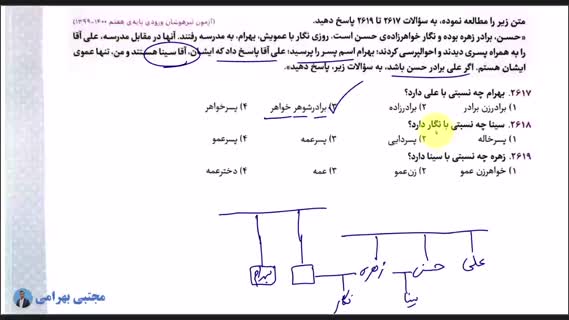 (آزمون تیزهوشان ورودی پایه‌ی هفتم ۱۴۰۰-۱۳۹۹)
متن زیر را مطالعه نموده، به سؤالات ۲۶۱۷ تا ۲۶۱۹ پاسخ دهید.
«حسن، برادر زهره بوده و نگار خواهرزاده‌ی حسن است. روزی نگار با عمویش، بهرام، به مدرسه رفتند. آنها در مقابل مدرسه، علی آقا
را به همراه پسری دیدند و احوالپرسی کردند؛ بهرام اسم پسر را پرسید؛ علی آقا پاسخ داد که ایشان، آقا سینا هستند و من، تنها عموی
ایشان هستم. اگر علی برادر حسن باشد، به سؤالات زیر، پاسخ دهید».
۲۶۱۷. بهرام چه نسبتی با علی دارد؟
۱) برادرزن برادر ۲) برادرزاده ۳) برادرشوهر خواهر ۴) پسرخواهر
۲۶۱۸. سینا چه نسبتی با نگار دارد؟
۱) پسرخاله ۲) پسردایی ۳) پسرعمه ۴) پسرعمو
۲۶۱۹. زهره چه نسبتی با سینا دارد؟
۱) خواهرزن عمو ۲) زن‌عمو ۳) عمه ۴) دخترعمه
بهرام زهره حسن علی
نگار سینا
مجتبی بهرامی